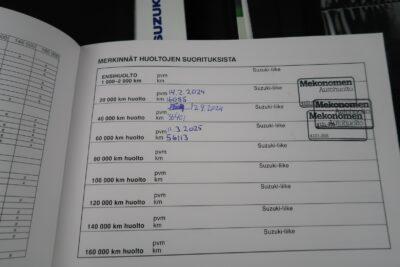 SUZUKI
MERKINNÄT HUOLTOJEN SUORITUKSISTA
ENSIHUOLTO
1 000–2 000 km
pvm
km
Suzuki-liike
20 000 km huolto
pvm 14.2.2024
km 16085
Suzuki-liike
Mekonomen
Autohuolto
40 000 km huolto
pvm 12.9.2024
km
Suzuki-liike
Mekonomen
60 000 km huolto
pvm 11.3.2025
km 56113
Mekonomen
Autohuolto
80 000 km huolto
pvm
km
Suzuki-liike
100 000 km huolto
pvm
km
Suzuki-liike
120 000 km huolto
pvm
km
Suzuki-liike
140 000 km huolto
pvm
km
Suzuki-liike
160 000 km huolto
pvm
km
Suzuki-liike